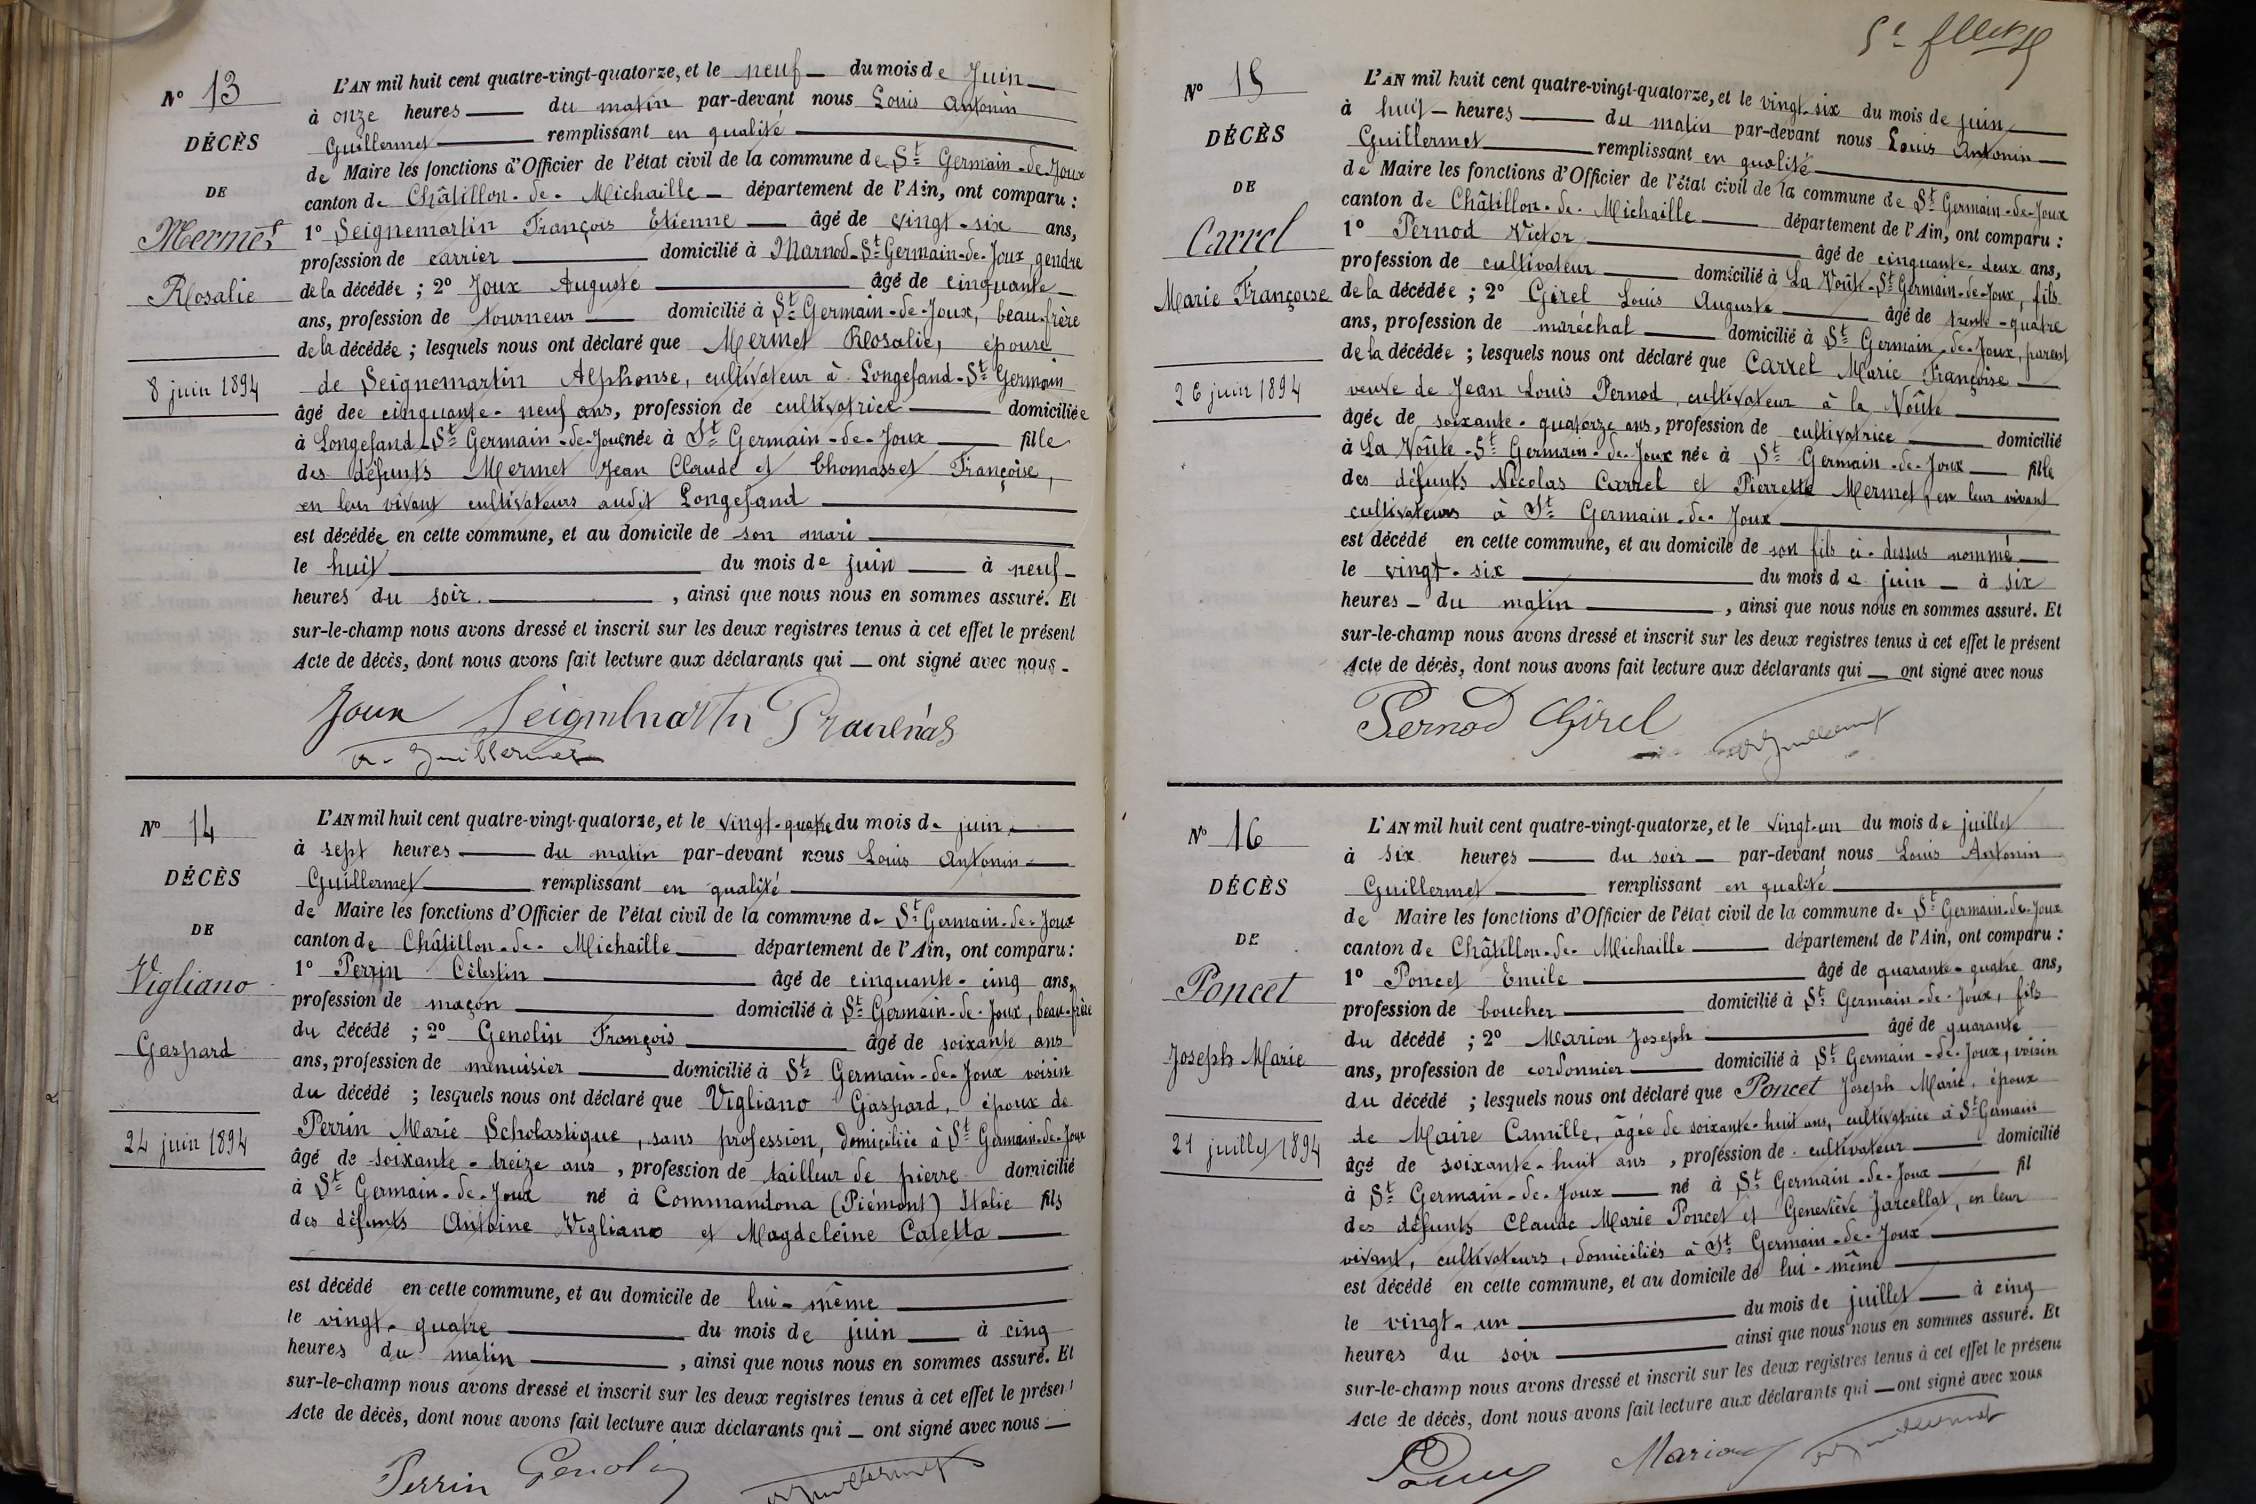 N° 13
DÉCÈS
DE
Mermet
Rosalie
8 juin 1894
L'AN mil huit cent quatre-vingt-quatorze, et le neuf du mois de Juin
à onze heures du matin par-devant nous Louis Antonin
Guillermet remplissant en qualité
de Maire les fonctions d'Officier de l'état civil de la commune de St Germain-de-Joux
canton de Châtillon-de-Michaille département de l'Ain, ont comparu :
1° Seignemartin François Etienne âgé de vingt-six ans,
profession de carrier domicilié à Marnod-St Germain-de-Joux, gendre
de la décédée ; 2° Joux Auguste âgé de cinquante
ans, profession de tourneur domicilié à St Germain-de-Joux, beau-frère
de la décédée ; lesquels nous ont déclaré que Mermet Rosalie, épouse
de Seignemartin Alphonse, cultivateur à Longefand-St Germain
âgé dee cinquante-neuf ans, profession de cultivatrice domiciliée
à Longefand-St Germain-de-Joux née à St Germain-de-Joux fille
des défunts Mermet Jean Claude et Chomasset Françoise,
en leur vivant cultivateurs audit Longefand
est décédée en cette commune, et au domicile de son mari
le huit du mois de juin à neuf
heures du soir, ainsi que nous nous en sommes assuré. Et
sur-le-champ nous avons dressé et inscrit sur les deux registres tenus à cet effet le présent
Acte de décès, dont nous avons fait lecture aux déclarants qui ont signé avec nous
Joux Seignemartin
A. Guillermet
N° 14
DÉCÈS
DE
Vigliano
Gaspard
24 juin 1894
L'AN mil huit cent quatre-vingt-quatorze, et le vingt-quatre du mois de juin
à sept heures du matin par-devant nous Louis Antonin
Guillermet remplissant en qualité
de Maire les fonctions d'Officier de l'état civil de la commune de St Germain-de-Joux
canton de Châtillon-de-Michaille département de l'Ain, ont comparu :
1° Perrin Célestin âgé de cinquante-cinq ans,
profession de maçon domicilié à St Germain-de-Joux, beau-frère
du décédé ; 2° Genolin François âgé de soixante ans
ans, profession de menuisier domicilié à St Germain-de-Joux voisin
du décédé ; lesquels nous ont déclaré que Vigliano Gaspard, époux de
Perrin Marie Scholastique, sans profession, domiciliée à St Germain-de-Joux
âgé de soixante-treize ans, profession de tailleur de pierre domicilié
à St Germain-de-Joux né à Commandona (Piémont) Italie fils
des défunts Antoine Vigliano et Magdeleine Caletta
est décédé en cette commune, et au domicile de lui-même
le vingt-quatre du mois de juin à cinq
heures du matin, ainsi que nous nous en sommes assuré. Et
sur-le-champ nous avons dressé et inscrit sur les deux registres tenus à cet effet le présent
Acte de décès, dont nous avons fait lecture aux déclarants qui ont signé avec nous
Perrin Genolin A Guillermet
N° 15
DÉCÈS
DE
Carrel
Marie Françoise
26 juin 1894
L'AN mil huit cent quatre-vingt-quatorze, et le vingt-six du mois de juin
à huit heures du matin par-devant nous Louis Antonin
Guillermet remplissant en qualité
de Maire les fonctions d'Officier de l'état civil de la commune de St Germain-de-Joux
canton de Châtillon-de-Michaille département de l'Ain, ont comparu :
1° Pernod Victor âgé de cinquante-deux ans,
profession de cultivateur domicilié à La Voûte-St Germain-de-Joux, fils
de la décédée ; 2° Girel Louis Auguste âgé de trente-quatre
ans, profession de maréchal domicilié à St Germain-de-Joux, parent
de la décédée ; lesquels nous ont déclaré que Carrel Marie Françoise
veuve de Jean Louis Pernod, cultivateur à la Voûte
âgée de soixante-quatorze ans, profession de cultivatrice domicilié
à La Voûte-St Germain-de-Joux née à St Germain-de-Joux fille
des défunts Nicolas Carrel et Pierrette Mermet, en leur vivant
cultivateurs à St Germain-de-Joux
est décédé en cette commune, et au domicile de son fils ci-dessus nommé
le vingt-six du mois de juin à six
heures du matin, ainsi que nous nous en sommes assuré. Et
sur-le-champ nous avons dressé et inscrit sur les deux registres tenus à cet effet le présent
Acte de décès, dont nous avons fait lecture aux déclarants qui ont signé avec nous
Pernod Girel A Guillermet
N° 16
DÉCÈS
DE
Poncet
Joseph Marie
21 juillet 1894
L'AN mil huit cent quatre-vingt-quatorze, et le vingt-un du mois de juillet
à six heures du soir par-devant nous Louis Antonin
Guillermet remplissant en qualité
de Maire les fonctions d'Officier de l'état civil de la commune de St Germain-de-Joux
canton de Châtillon-de-Michaille département de l'Ain, ont comparu :
1° Poncet Emile âgé de quarante-quatre ans,
profession de boucher domicilié à St Germain-de-Joux, fils
du décédé ; 2° Marion Joseph âgé de quarante
ans, profession de cordonnier domicilié à St Germain-de-Joux, voisin
du décédé ; lesquels nous ont déclaré que Poncet Joseph Marie, époux
de Maire Camille, âgée de soixante-huit ans, cultivatrice à St Germain
âgé de soixante-huit ans, profession de cultivateur domicilié
à St Germain-de-Joux né à St Germain-de-Joux fil
des défunts Claude Marie Poncet et Geneviève Jarcellat, en leur
vivant, cultivateurs, domiciliés à St Germain-de-Joux
est décédé en cette commune, et au domicile de lui-même
le vingt-un du mois de juillet à cinq
heures du soir ainsi que nous nous en sommes assuré. Et
sur-le-champ nous avons dressé et inscrit sur les deux registres tenus à cet effet le présent
Acte de décès, dont nous avons fait lecture aux déclarants qui ont signé avec nous
Poncet Marion A Guillermet